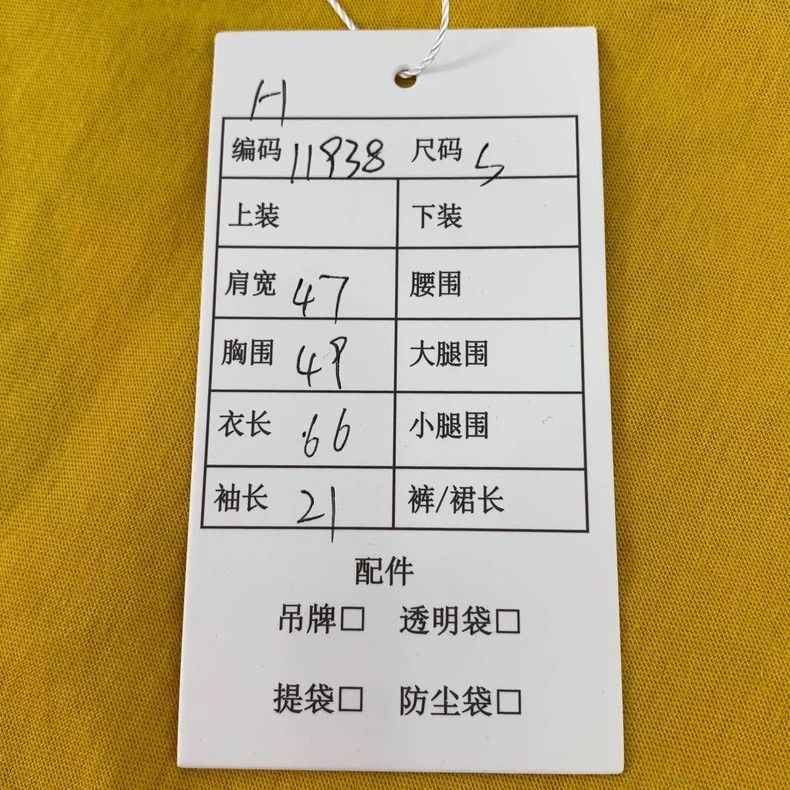 H
编码 11938 尺码 S
上装 下装
肩宽 47 腰围
胸围 49 大腿围
衣长 66 小腿围
袖长 21 裤/裙长
配件
吊牌□ 透明袋□
提袋□ 防尘袋□